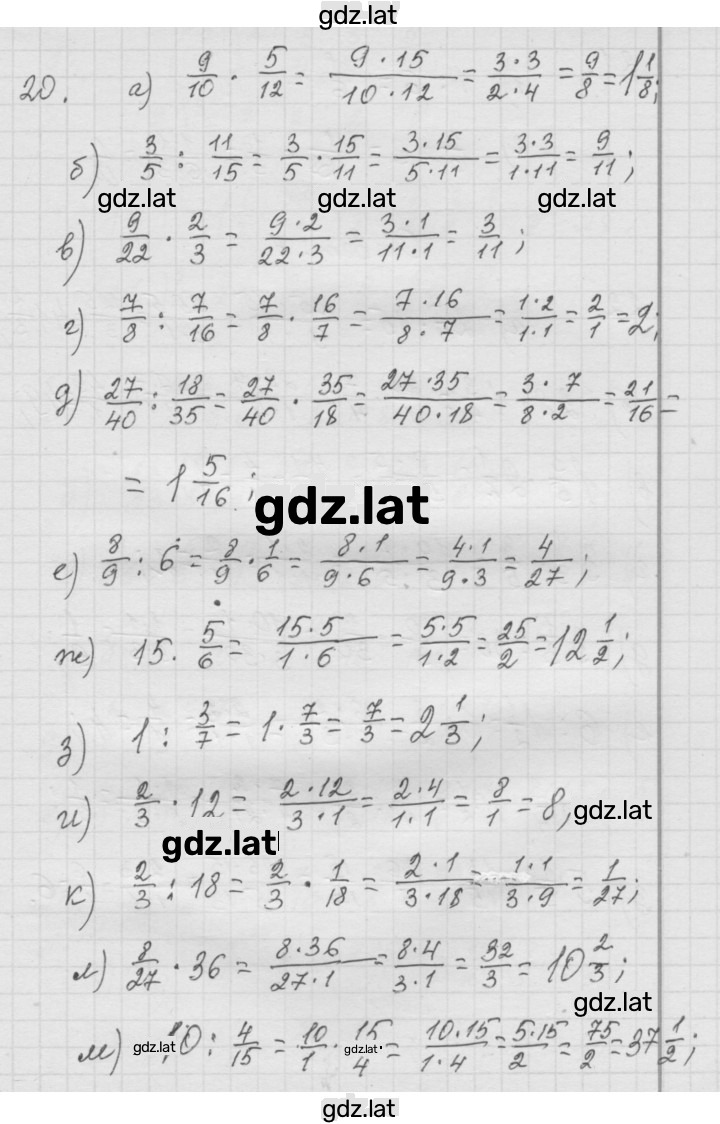 gdz.lat
20. а) 9/10 · 5/12 = 9·15/10·12 = 3·3/2·4 = 9/8 = 1 1/8;
б) 3/5 : 11/15 = 3/5 · 15/11 = 3·15/5·11 = 3·3/1·11 = 9/11;
gdz.lat gdz.lat gdz.lat
в) 9/22 · 2/3 = 9·2/22·3 = 3·1/11·1 = 3/11;
г) 7/8 : 7/16 = 7/8 · 16/7 = 7·16/8·7 = 1·2/1·1 = 2/1 = 2;
д) 27/40 : 18/35 = 27/40 · 35/18 = 27·35/40·18 = 3·7/8·2 = 21/16 =
= 1 5/16;
gdz.lat
е) 8/9 : 6 = 8/9 · 1/6 = 8·1/9·6 = 4·1/9·3 = 4/27;
ж) 15 · 5/6 = 15·5/1·6 = 5·5/1·2 = 25/2 = 12 1/2;
з) 1 : 3/7 = 1 · 7/3 = 7/3 = 2 1/3;
и) 2/3 · 12 = 2·12/3·1 = 2·4/1·1 = 8/1 = 8, gdz.lat
gdz.lat
к) 2/3 : 18 = 2/3 · 1/18 = 2·1/3·18 = 1·1/3·9 = 1/27;
л) 8/27 · 36 = 8·36/27·1 = 8·4/3·1 = 32/3 = 10 2/3;
gdz.lat
м) gdz.lat 10 : 4/15 = 10/1 · 15/4 gdz.lat = 10·15/1·4 = 5·15/2 = 75/2 = 37 1/2;
gdz.lat